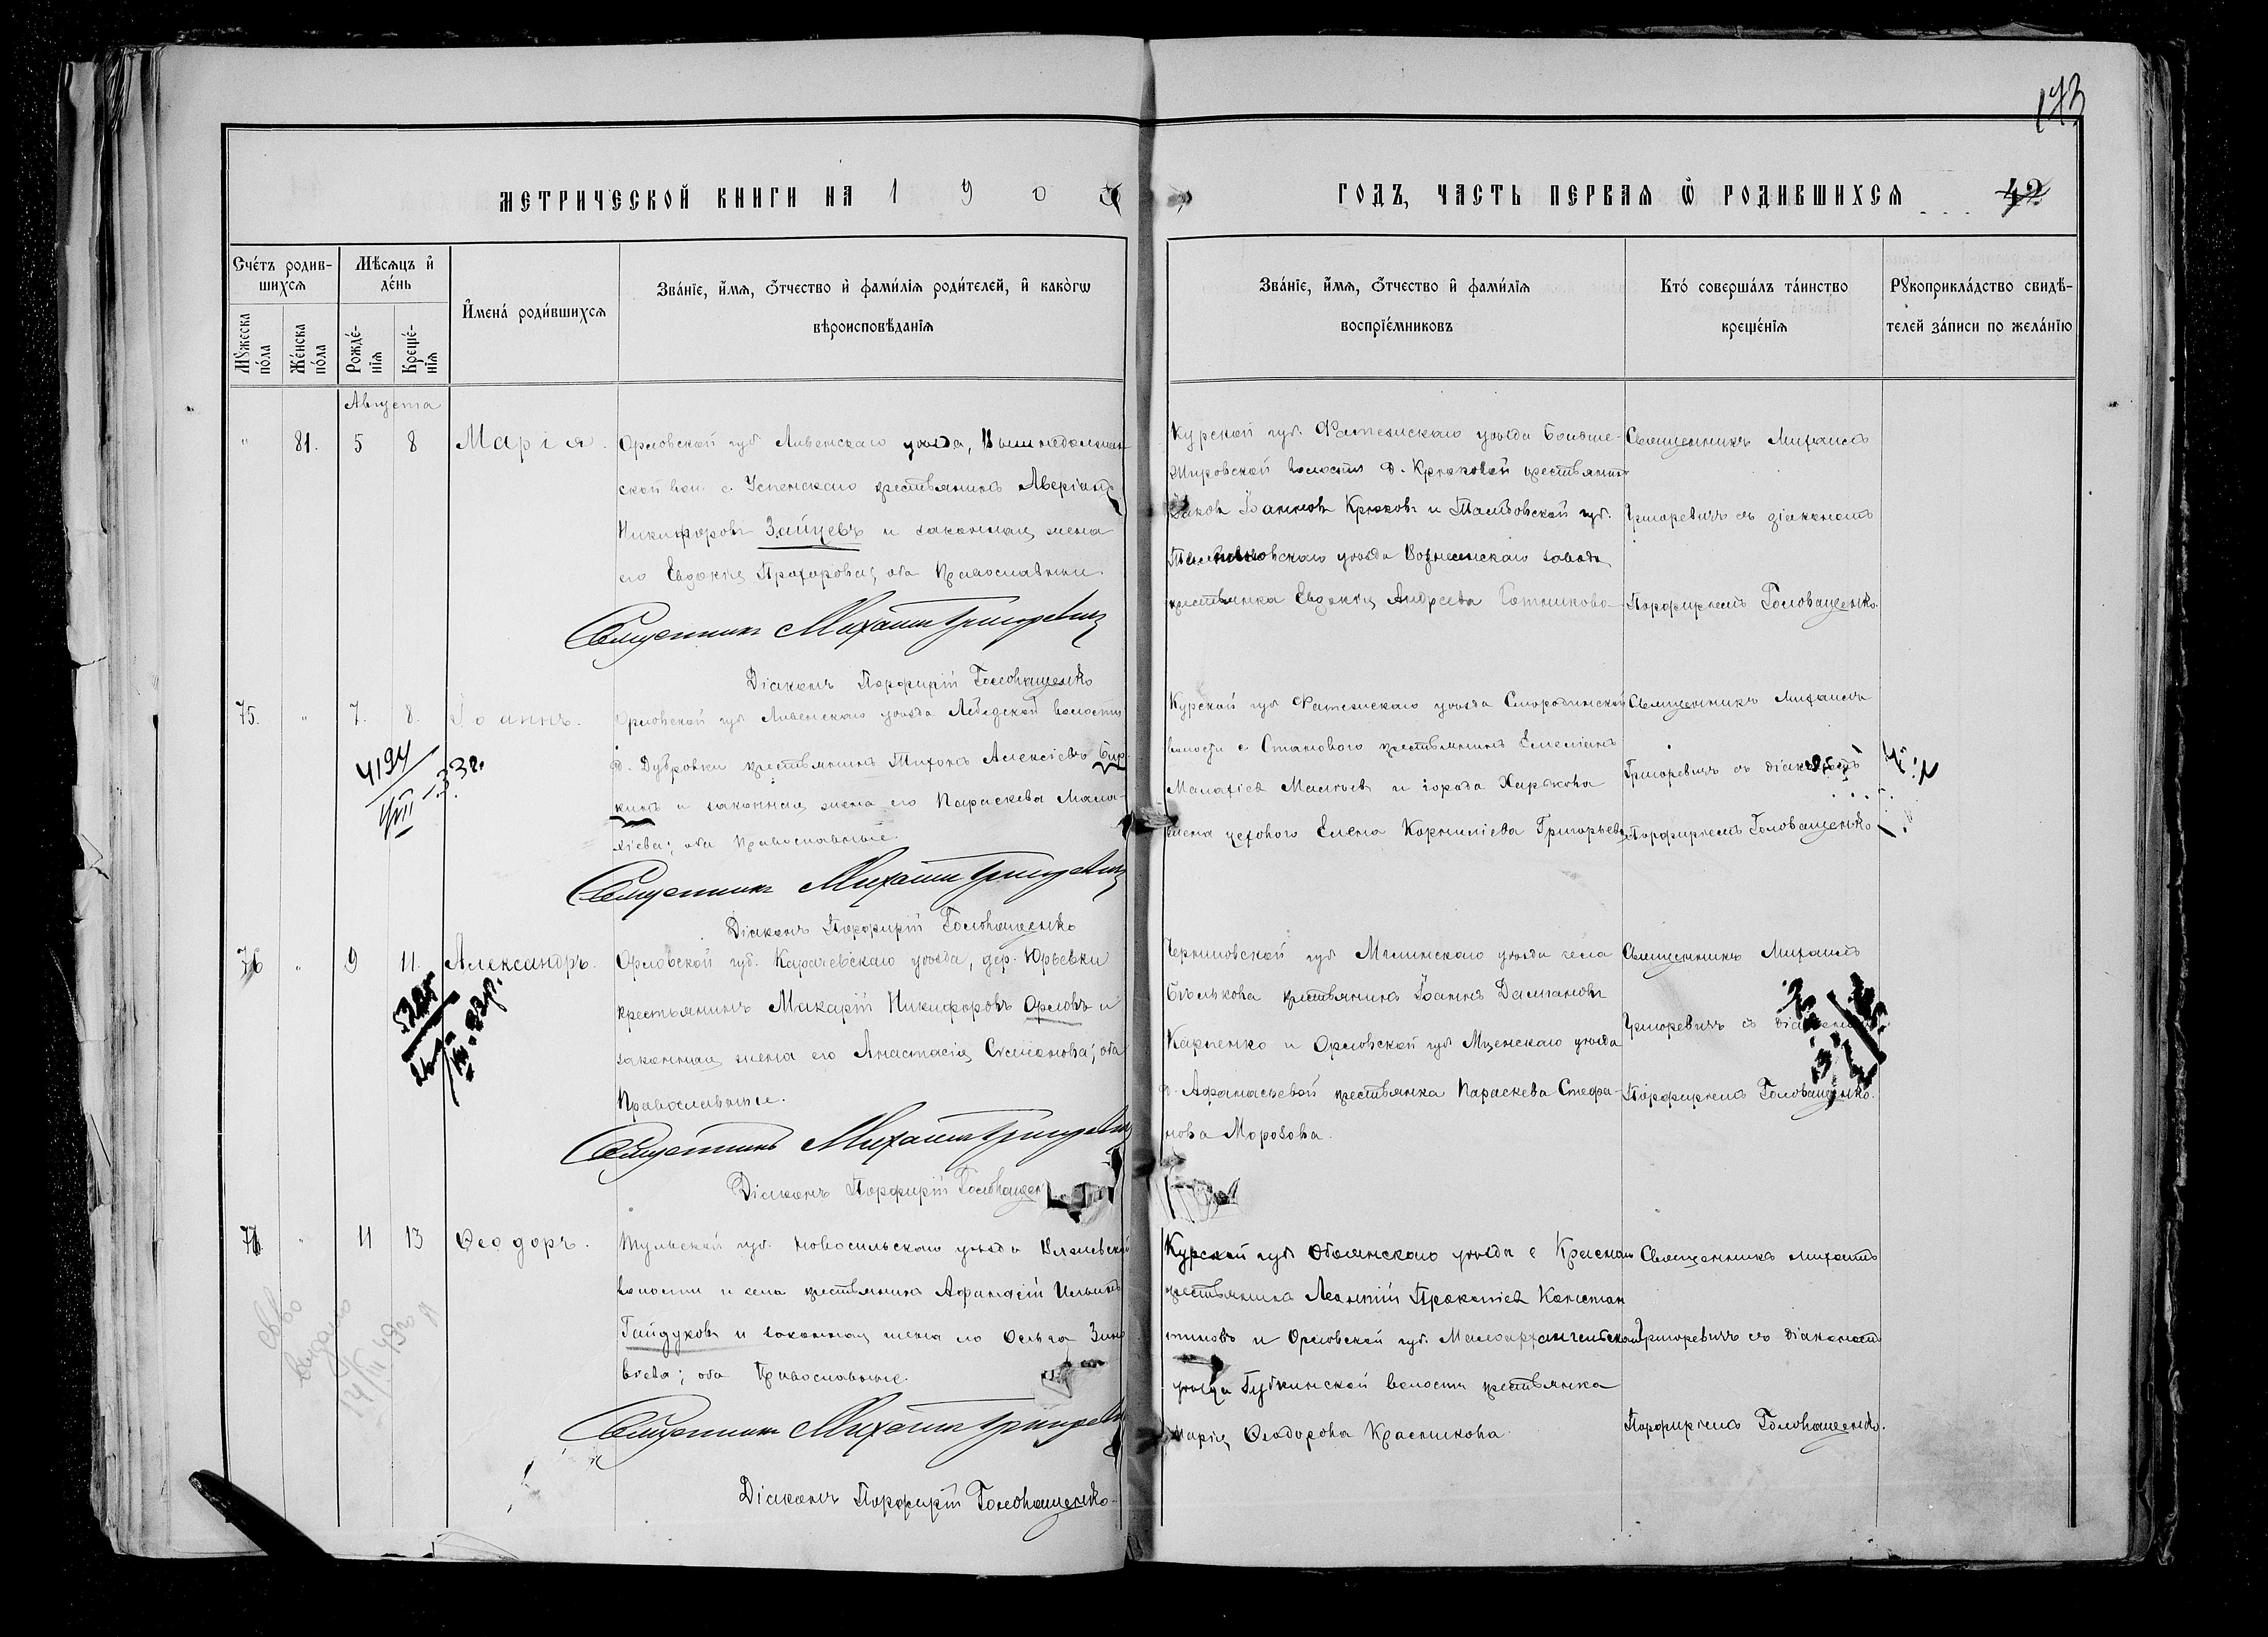 173
МЕТРИЧЕСКОЙ КНИГИ НА 190
ГОДЪ, ЧАСТЬ ПЕРВАЯ Ѿ РОДИВШИХСЯ
42
Счéтъ родив-
шихсѧ
Мѣсѧцъ и҆
дéнь
Мꙋжеска
пóла
Жéнска
пóла
Рождé-
нїѧ
Крещé-
нїѧ
И҆мена́ роди́вшихсѧ
Зва́нїе, и҆́мѧ, ѻ҆́тчество и҆ фами́лїѧ роди́телей, и҆ како́гѡ
вѣроисповѣ́данїѧ
Зва́нїе, и҆́мѧ, ѻ҆́тчество и҆ фами́лїѧ
воспрїе́мниковъ
Кто́ соверша́лъ та́инство
креще́нїѧ
Рꙋкоприкла́дство свидѣ́-
телей за́писи по жела́нїю
Августа
" 81. 5 8 Марія.
Орловской губ Ливенскаго уѣзда,
ской вол с. Успенскаго крестьянинъ Аверіанъ
Никифоровъ Зайцевъ и законная жена
его Евдокія Прохорова; оба Православные.
Священникъ Михаилъ Григоревичъ
Діаконъ Порфирій Головащенко
Курской губ. Фатежскаго уѣзда Больше-
Жировской волости д. Крюковой крестьянинъ
Іаковъ Іоанновъ Крюковъ и Тамбовской губ.
уѣзда Вознесенскаго завода
крестьянка Евдокія Андреева
Священникъ Михаилъ
Григоревичъ съ діакономъ
Порфиріемъ Головащенко.
75. " 7. 8. Іоаннъ.
4194
VIII 33г.
Орловской губ Ливенскаго уѣзда волости
д. Дубровки крестьянинъ Тихонъ Алексіевъ Бир-
кинъ и законная жена его Параскева Мала-
хіева; оба Православные.
Священникъ Михаилъ Григоревичъ
Діаконъ Порфирій Головащенко
Курской губ Фатежскаго уѣзда Смородинской
волости с Становаго крестьянинъ Емеліанъ
Малахіевъ и города Харькова
жена цеховаго Елена Корниліева Григорьева
Священникъ Михаилъ
Григоревичъ съ діакономъ
Порфиріемъ Головащенко
76 " 9 11. Александръ.
Орловской губ. Карачевскаго уѣзда, дер. Юрьевки
крестьянинъ Макарій Никифоровъ Орловъ и
законная жена его Анастасія Симонова; оба
Православные.
Священникъ Михаилъ Григоревичъ
Діаконъ Порфирій Головащен
Черниговской губ Мглинскаго уѣзда села
крестьянинъ Іоаннъ Даміановъ
Карпенко и Орловской губ Мценскаго уѣзда
д. Афанасьевой крестьянка Параскева Стефа-
нова Морозова.
Священникъ Михаилъ
Григоревичъ съ діакономъ
Порфиріемъ Головащенко.
77. " 11 13 Ѳеодоръ.
выдано
Тульской губ. Новосильскаго уѣзда
волости и села крестьянинъ Афанасій Ильинъ
Гайдуковъ и законная жена его Ольга Зино
віева; оба Православные.
Священникъ Михаилъ Григоревичъ
Діаконъ Порфирій Головащенко
Курской губ Обоянскаго уѣзда с
крестьянинъ Леонтій Прокопіевъ Констан
тиновъ и Орловской губ. Малоархангельскаго
уѣзда Губкинской волости крестьянка
Марія Ѳеодорова Красникова.
Священникъ Михаилъ
Григоревичъ съ діакономъ
Порфиріемъ Головащенко.